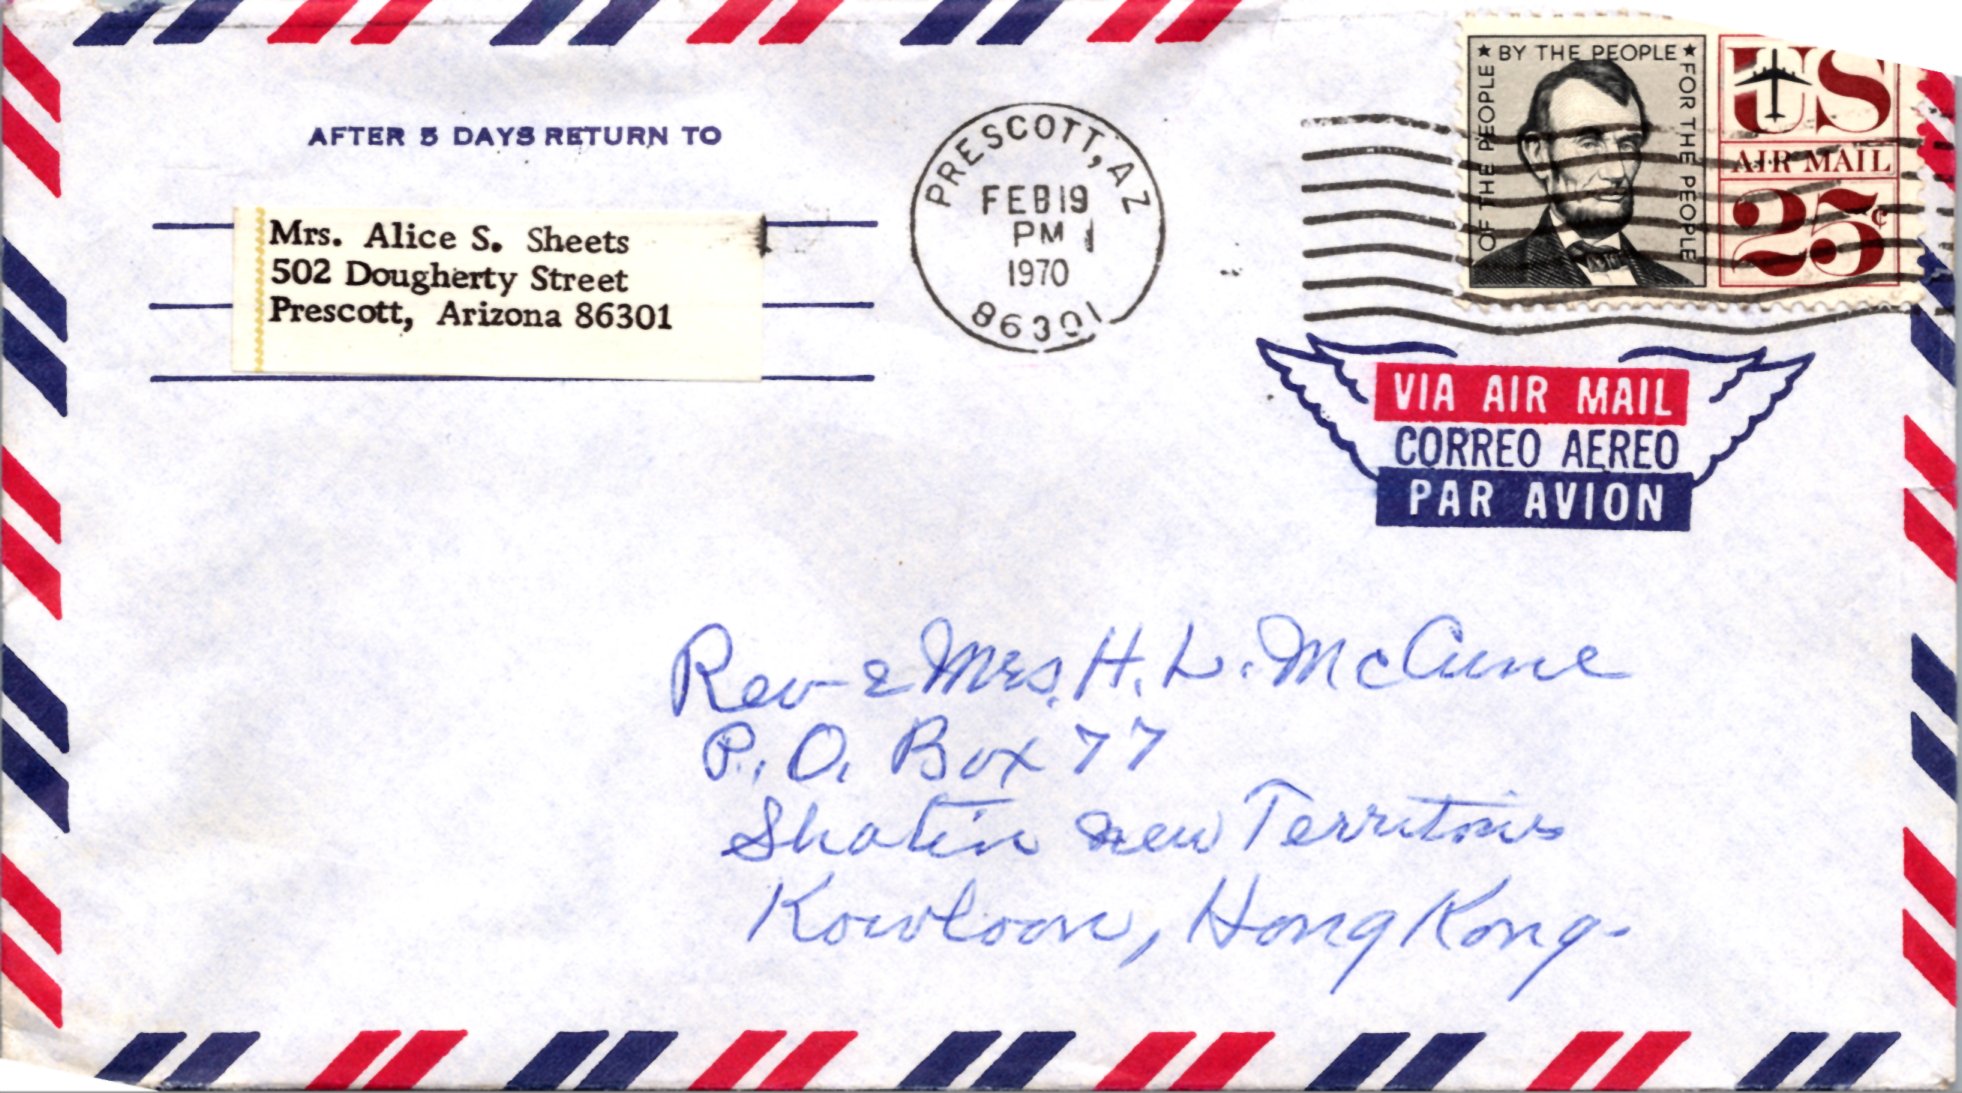 AFTER 5 DAYS RETURN TO
Mrs. Alice S. Sheets
502 Dougherty Street
Prescott, Arizona 86301
PRESCOTT, AZ
FEB 19
PM
1970
86301
OF THE PEOPLE ★ BY THE PEOPLE ★ FOR THE PEOPLE
US
AIR MAIL
25¢
VIA AIR MAIL
CORREO AEREO
PAR AVION
Rev & Mrs. H. L. McCune
P. O. Box 77
Shatin New Territories
Kowloon, Hong Kong.